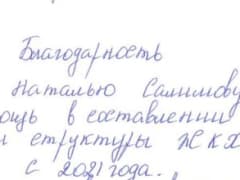 Благодарность
Наталью Салимову
ощь в составлении
и структуры ЖКХ
с 2021 года.